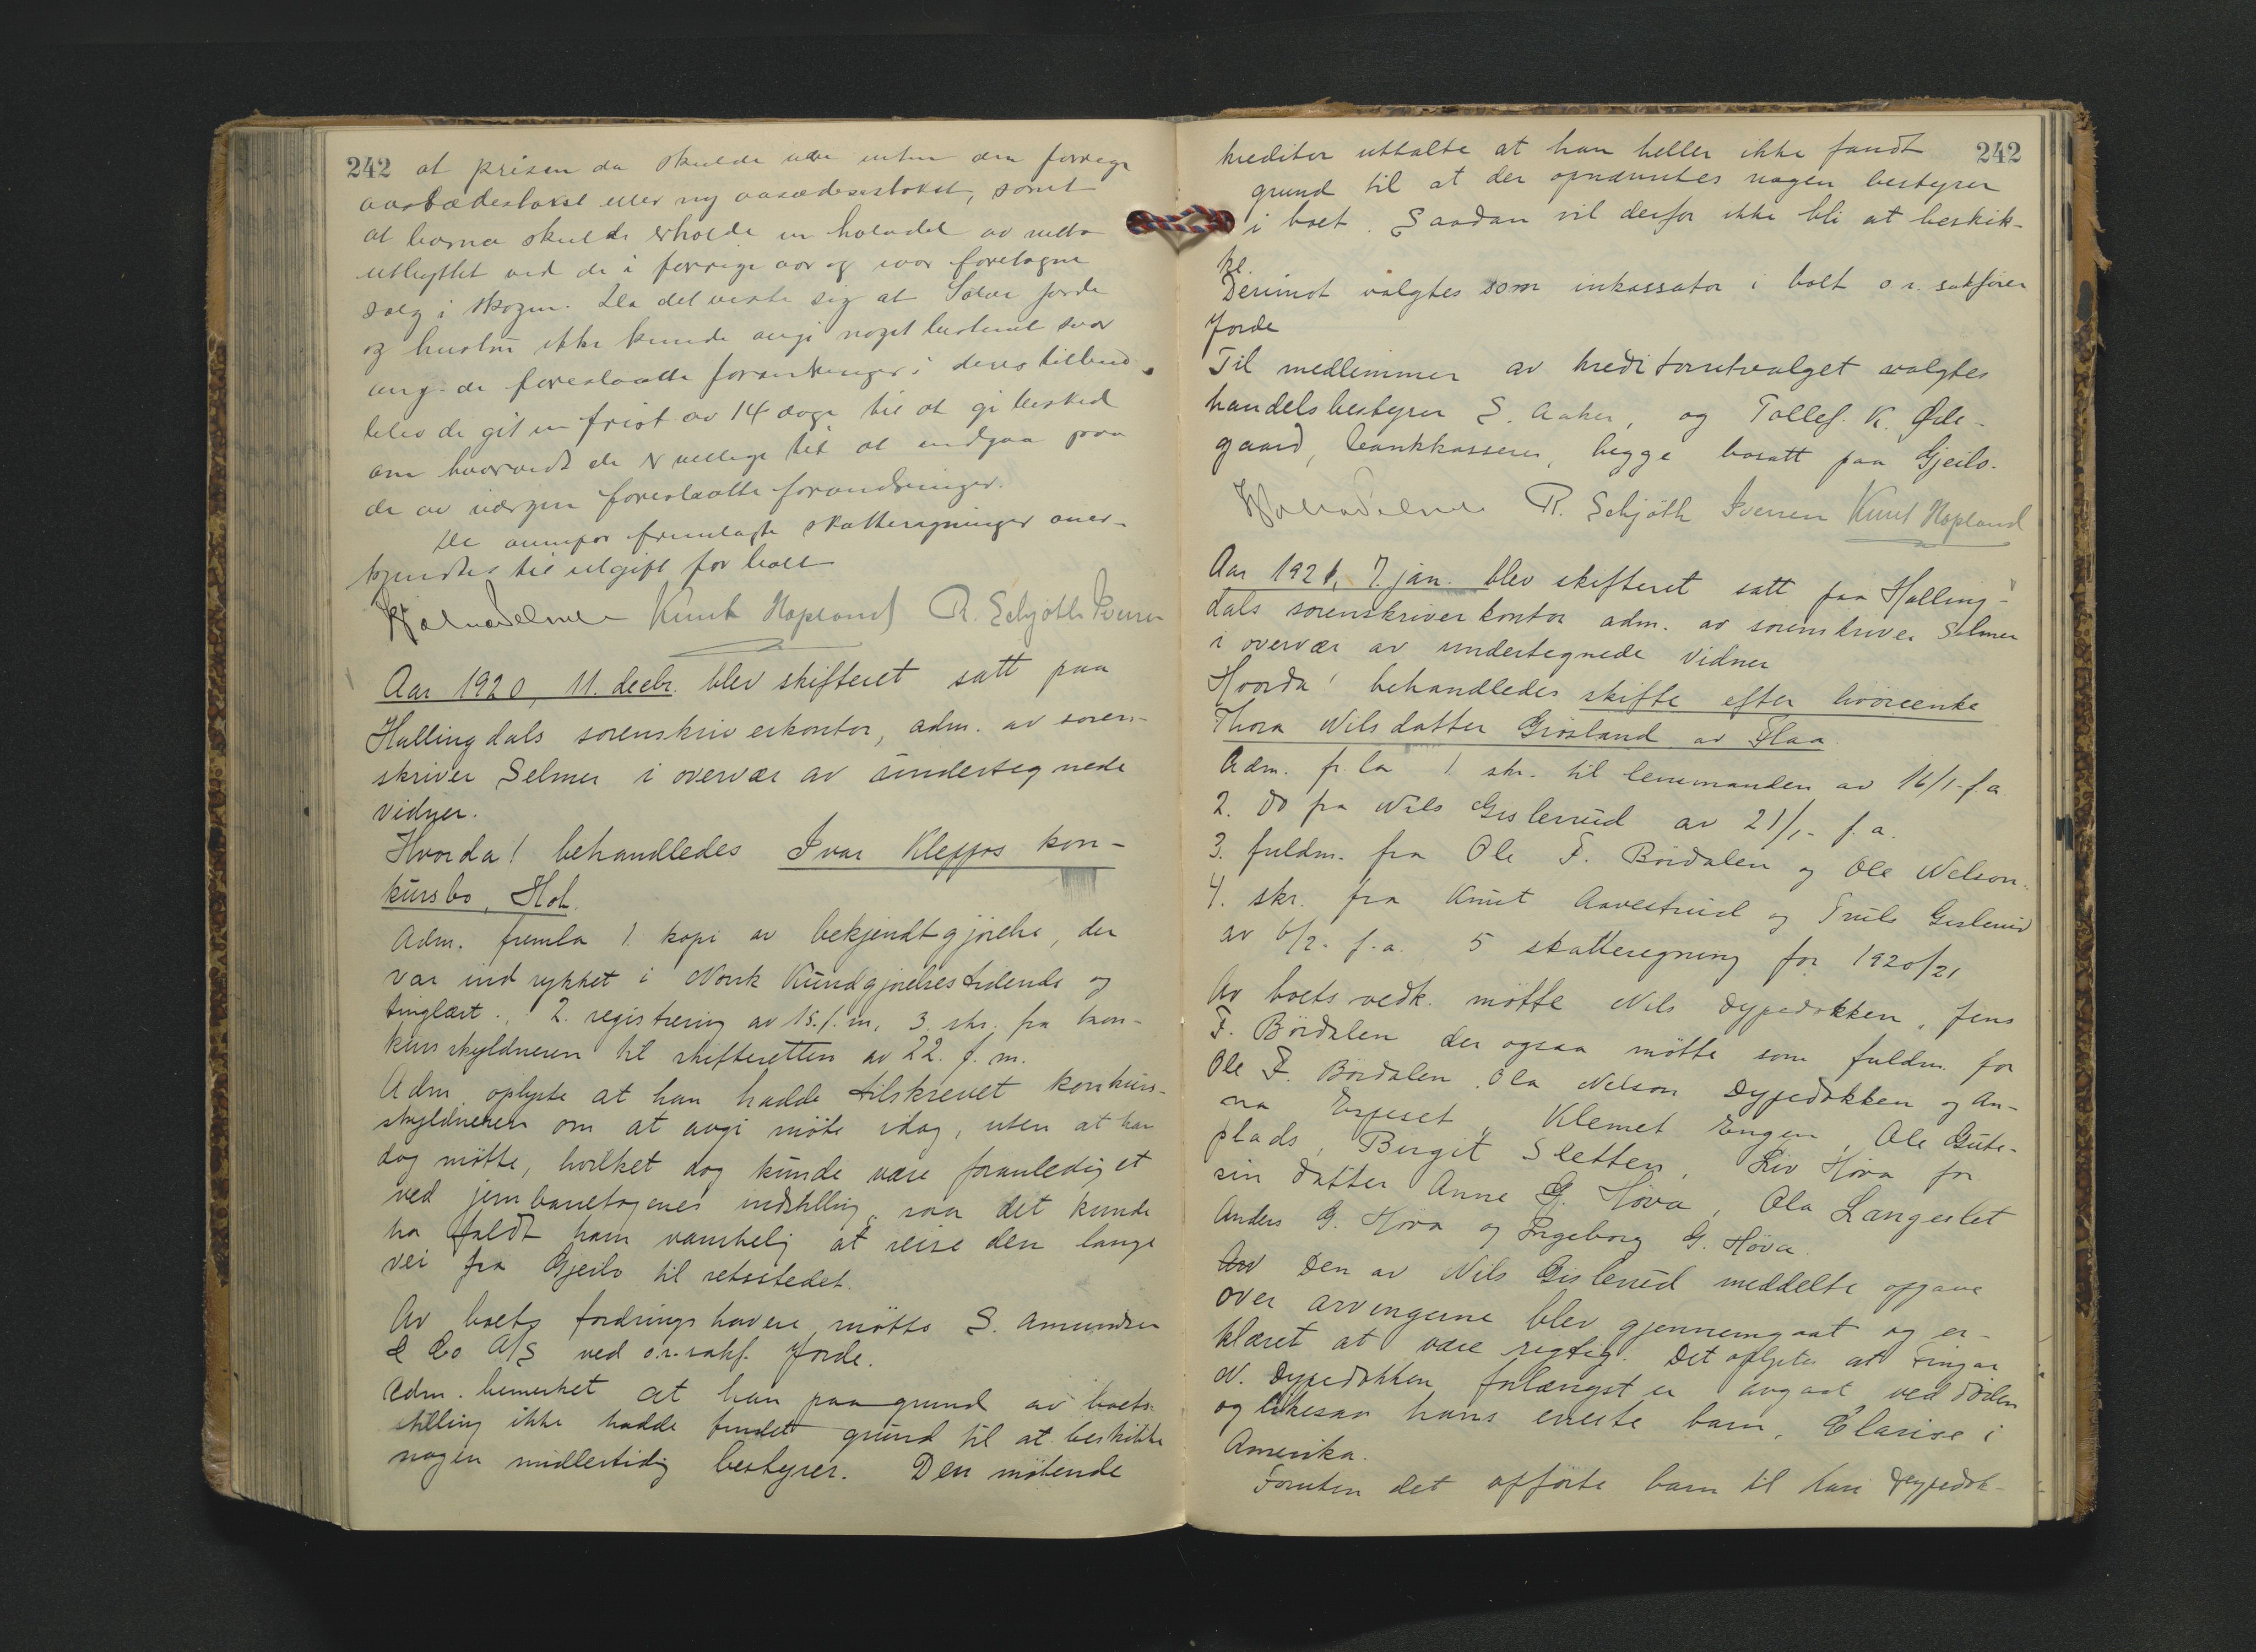 242 at prisen da skulde være uten den forrige
aasædestakst eller ny aasædestakst, samt
at barna skulde erholde en halvdel av netto
utbyttet ved de i forrige aar og iaar foretagne
salg i skogen. Da det viste sig at Jorde
og hustru ikke kunde avgi noget bestemt svar
ang. de foreslaatte forandringer i deres tilbud,
blev de git en frist av 14 dage til at gi besked
om hvorvidt de er villige til at indgaa paa
de av værgen foreslaatte forandringer.
De ovenfor fremlagte skatteregninger aner-
kjendtes til utgift for boet
Knut Hapland R. Schjöth Iversen
Aar 1920, 11. decbr. blev skifteret satt paa
Hallingdals sorenskriverkontor, adm. av soren-
skriver Selmer i overvær av undertegnede
vidner.
Hvorda! behandledes Ivar Kleppos kon-
kursbo, Hol.
Adm. fremla 1. kopi av bekjendtgjörelse, der
var indrykket i Norsk Kundgjörelsestidende og
tinglæst., 2. registrering av 15. f. m. 3. skr. fra kon-
kursskyldneren til skifteretten av 22. f. m.
Adm. oplyste at han hadde tilskrevet konkurs-
skyldneren om at avgi möte idag, uten at han
dog mötte, hvilket dog kunde være foranlediget
ved jernbanetogenes indstilling, saa det kunde
ha faldt ham vanskelig at reise den lange
vei fra Gjeilo til retsstedet.
Av boets fordringshavere mötte S. Amundsen
& Co A/S ved o.r.sakf. Jorde.
Adm. bemerket at han paa grund av boets
stilling ikke hadde fundet grund til at beskikke
nogen midlertidig bestyrer. Den mötende
242
kreditor uttalte at han heller ikke fandt
grund til at der opnævntes nogen bestyrer
i boet. Saadan vil derfor ikke bli at beskik-
ke.
Derimot valgtes som inkassator i boet o.r. sakförer
Jorde
Til medlemmer av kreditorutvalget valgtes
handelsbestyrer S. Aaker, og Tollef. K. Öde-
gaard, bankkasserer, begge bosatt paa Gjeilo.
R. Schjöth Iversen Knut Hapland
Aar 1921, 7. jan. blev skifteret satt paa Halling-
dals sorenskriverkontor adm. av sorenskriver Selmer
i overvær av undertegnede vidner
Hvorda! behandledes skifte efter
Thora Nilsdatter Grösland av Flaa
Adm. fr.la 1 skr. til lensmanden av 16/1- f.a.
2. do fra Nils Gislerud av 21/1- f. a.
3. fuldm. fra Ole F. Böidalen og Ole Nelson.
4. skr. fra Knut Aavestrud og Truls Gislerud
av 6/2- f. a. 5 skatteregning for 1920/21
Av boets vedk. mötte Nils Dypedokken, Jens
F. Böidalen der ogsaa mötte som fuldm. for
Ole F. Böidalen, Ola Nelson Dypedokken og An-
na Klemet Engen, Ole Gute-
plads, Birgit Sletten, Liv Höva for
sin datter Anne G. Höva, Ola Langeslet
Anders G. Höva og Ingeborg G. Höva.
Av Den av Nils Gislerud meddelte opgave
over arvingerne blev gjennemgaat og er-
klæret at være rigtig. Det oplystes at
N. Dypedokken forlængst er avgaat ved döden
og likesaa hans eneste barn, Clarise i
Amerika.
Foruten det opförte barn til Kari Dypedok-